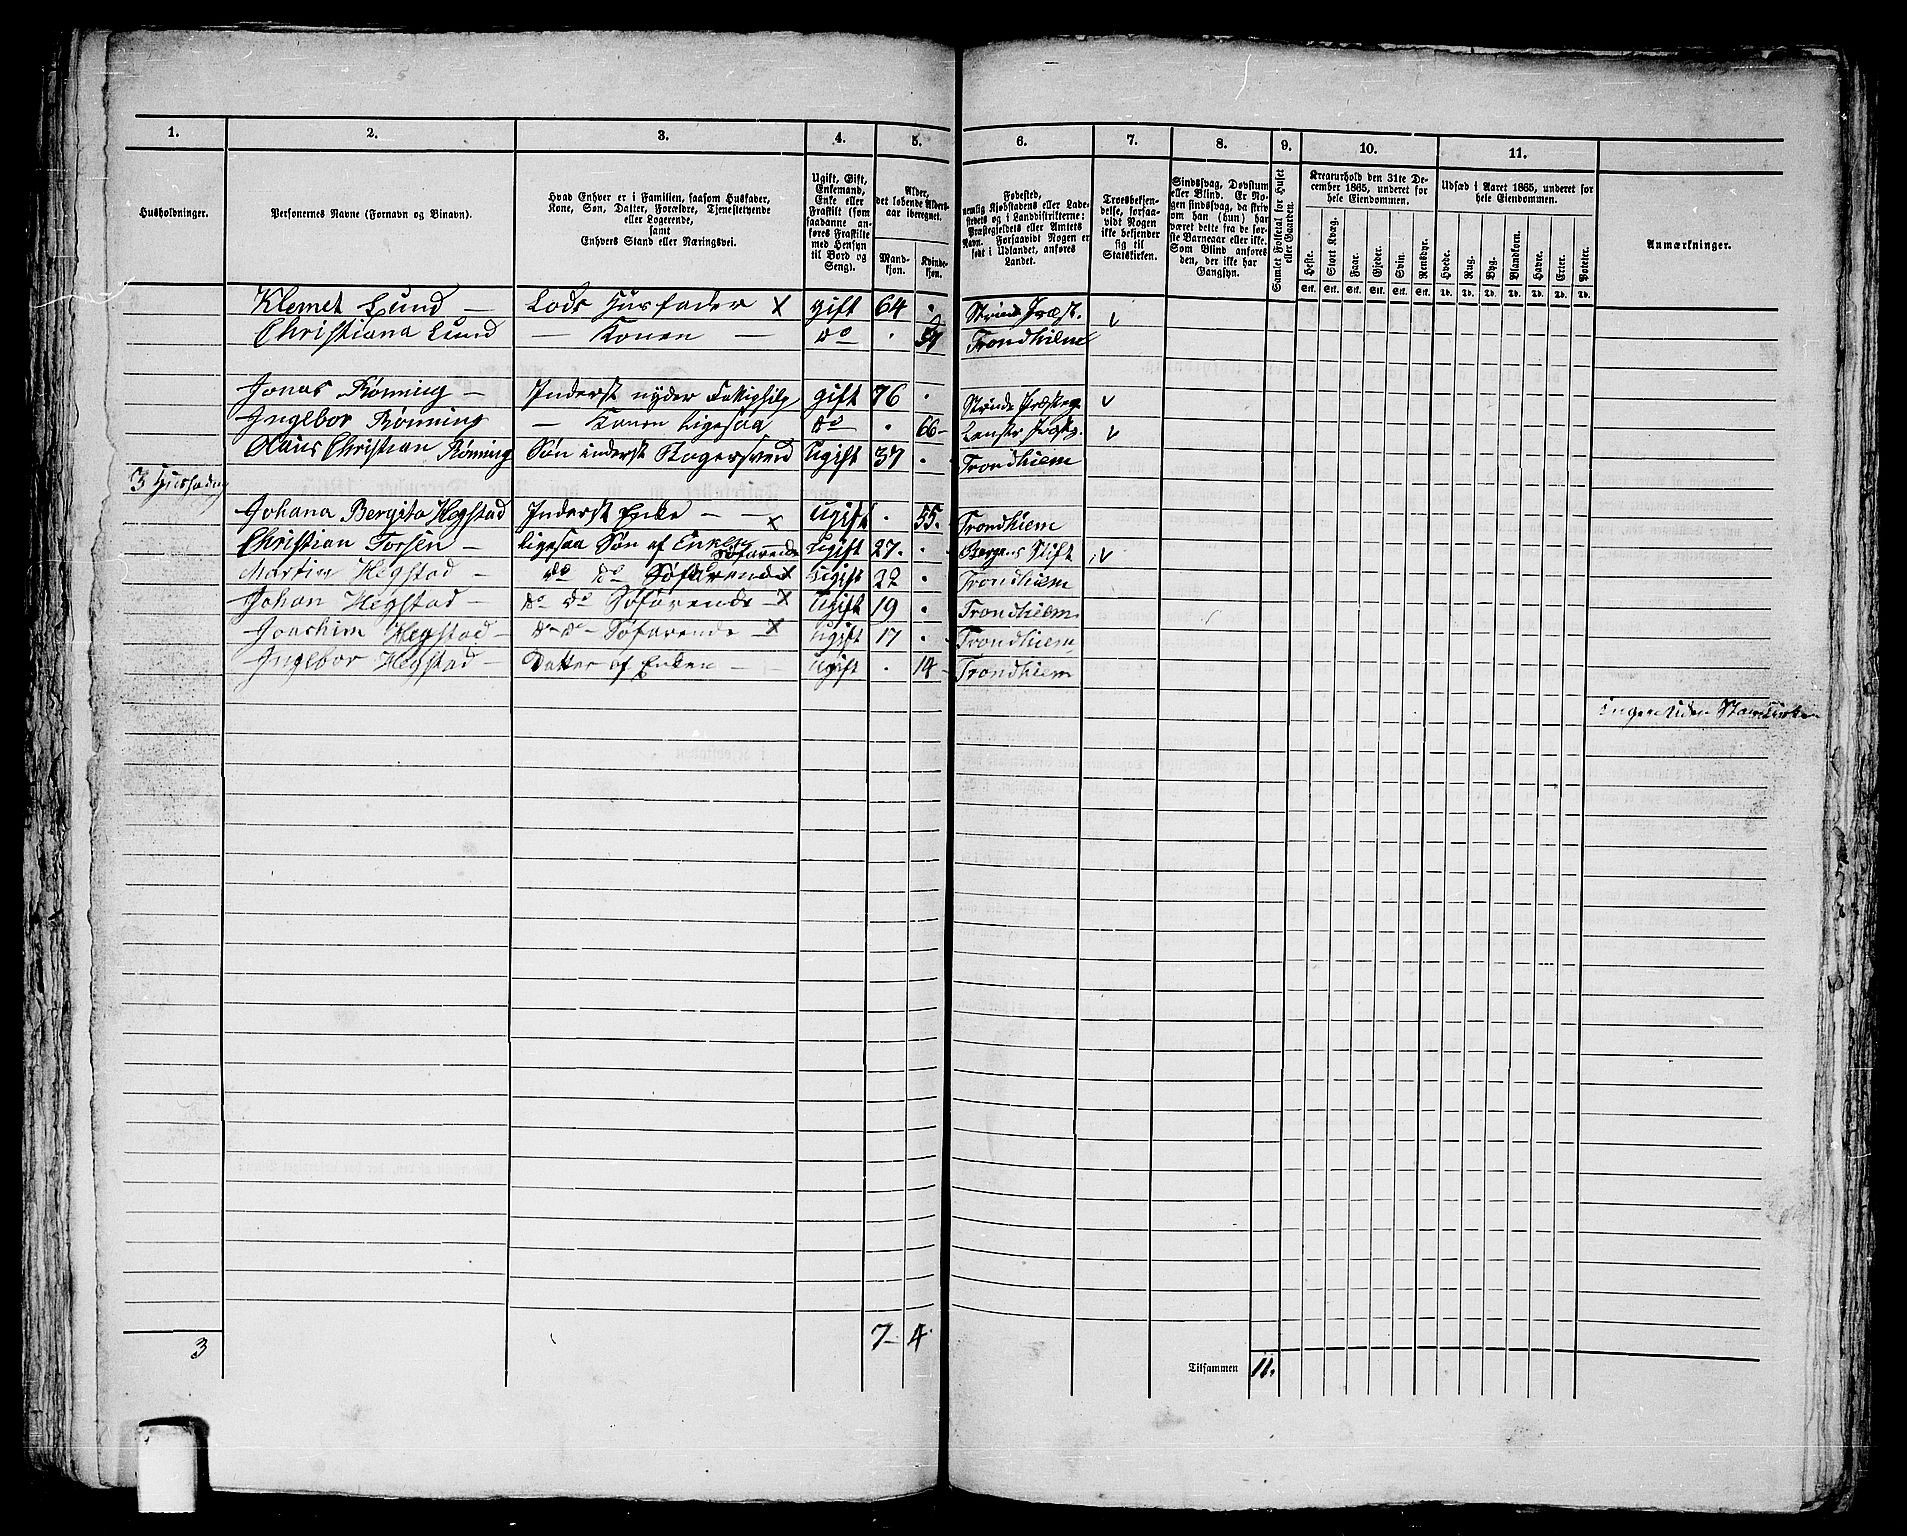 1. 2. 3. 4. 5. 6. 7. 8. 9. 10. 11.
Husholdninger.
Personernes Navne (Fornavn og Binavn).
Hvad Enhver er i Familien, saasom Husfader,
Kone, Søn, Datter, Forældre, Tjenestetyende
eller Logerende,
samt
Enhvers Stand eller Næringsvei.
Ugift, Gift,
Enkemand,
Enke eller
Fraskilt (som
saadanne an-
føres Fraskilte
med Hensyn
til Bord og
Seng).
Alder,
det løbende Alders-
aar iberegnet.
Mand-
kjøn.
Kvinde-
kjøn.
Fødested,
nemlig Kjøbstadens eller Lade-
stedets og i Landdistrikterne:
Præstegjeldets eller Amtets
Navn. Forsaavidt Nogen er
født i Udlandet, anføres
Landet.
Troesbekjen-
delse, forsaa-
vidt Nogen
ikke bekjender
sig til
Statskirken.
Sindssvag, Døvstum
eller Blind. Er No-
gen sindssvag, da skriv
om han (hun) har
været dette fra de før-
ste Barneaar eller ikke.
Som Blind anføres
den, der ikke har
Gangsyn.
Samlet Folketal for Huset
eller Gaarden.
Kreaturhold den 31te De-
cember 1865, underet for
hele Eiendommen.
Heste. Stort Kvæg. Faar. Gjeder. Svin. Rensdyr.
Stk. Stk. Stk. Stk. Stk. Stk.
Udsæd i Aaret 1865, underet for
hele Eiendommen.
Hvede. Rug. Byg. Blandkorn. Havre. Erter. Poteter.
Td. Td. Td. Td. Td. Td. Td.
Anmærkninger.
Klemet Lund — Lods Husfader x gift 64 . Strinde Præst. v
Christiana Lund — Konen — do . Trondhiem
Jonas Rønning — Inderst nyder gift 76 . Strinde Præsteg v
Ingebor Rønning — Konen ligesaa do . 66 — v
Hans Christian Rønning Søn inderst Ugift 37 . Trondhiem
3
Johana Bergita Hegstad Inderst Enke — x ugift . 55. Trondhiem
Christian Torsen — ligesaa Søn af Enken Søfarende Ugift 27. . Bergens Stift v
Martin Hegstad — do do Søfarende x Ugift 22 . Trondhiem
Johan Hegstad — do do Søfarende — x Ugift 19 . Trondhiem
Joachim Hegstad — do do — Søfarende — x Ugift 17 . Trondhiem
Ingebor Hegstad — Datter af Enken — Ugift . 14 — Trondhiem
3 7 — 4
Tilsammen 11.